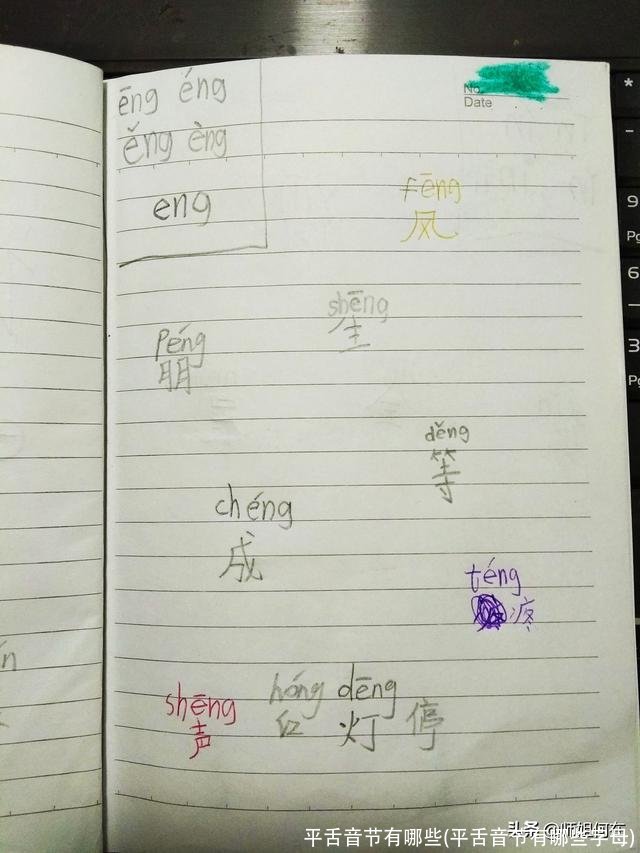 ēng éng
ěng èng
eng
No
Date
fēng
风
shēng
生
péng
朋
děng
等
chéng
成
téng
疼
shēng
声
hóng dēng
红 灯 停
*
-
9
Pg
6
3
Pg
头条 @师姐何在
平舌音节有哪些(平舌音节有哪些字母)